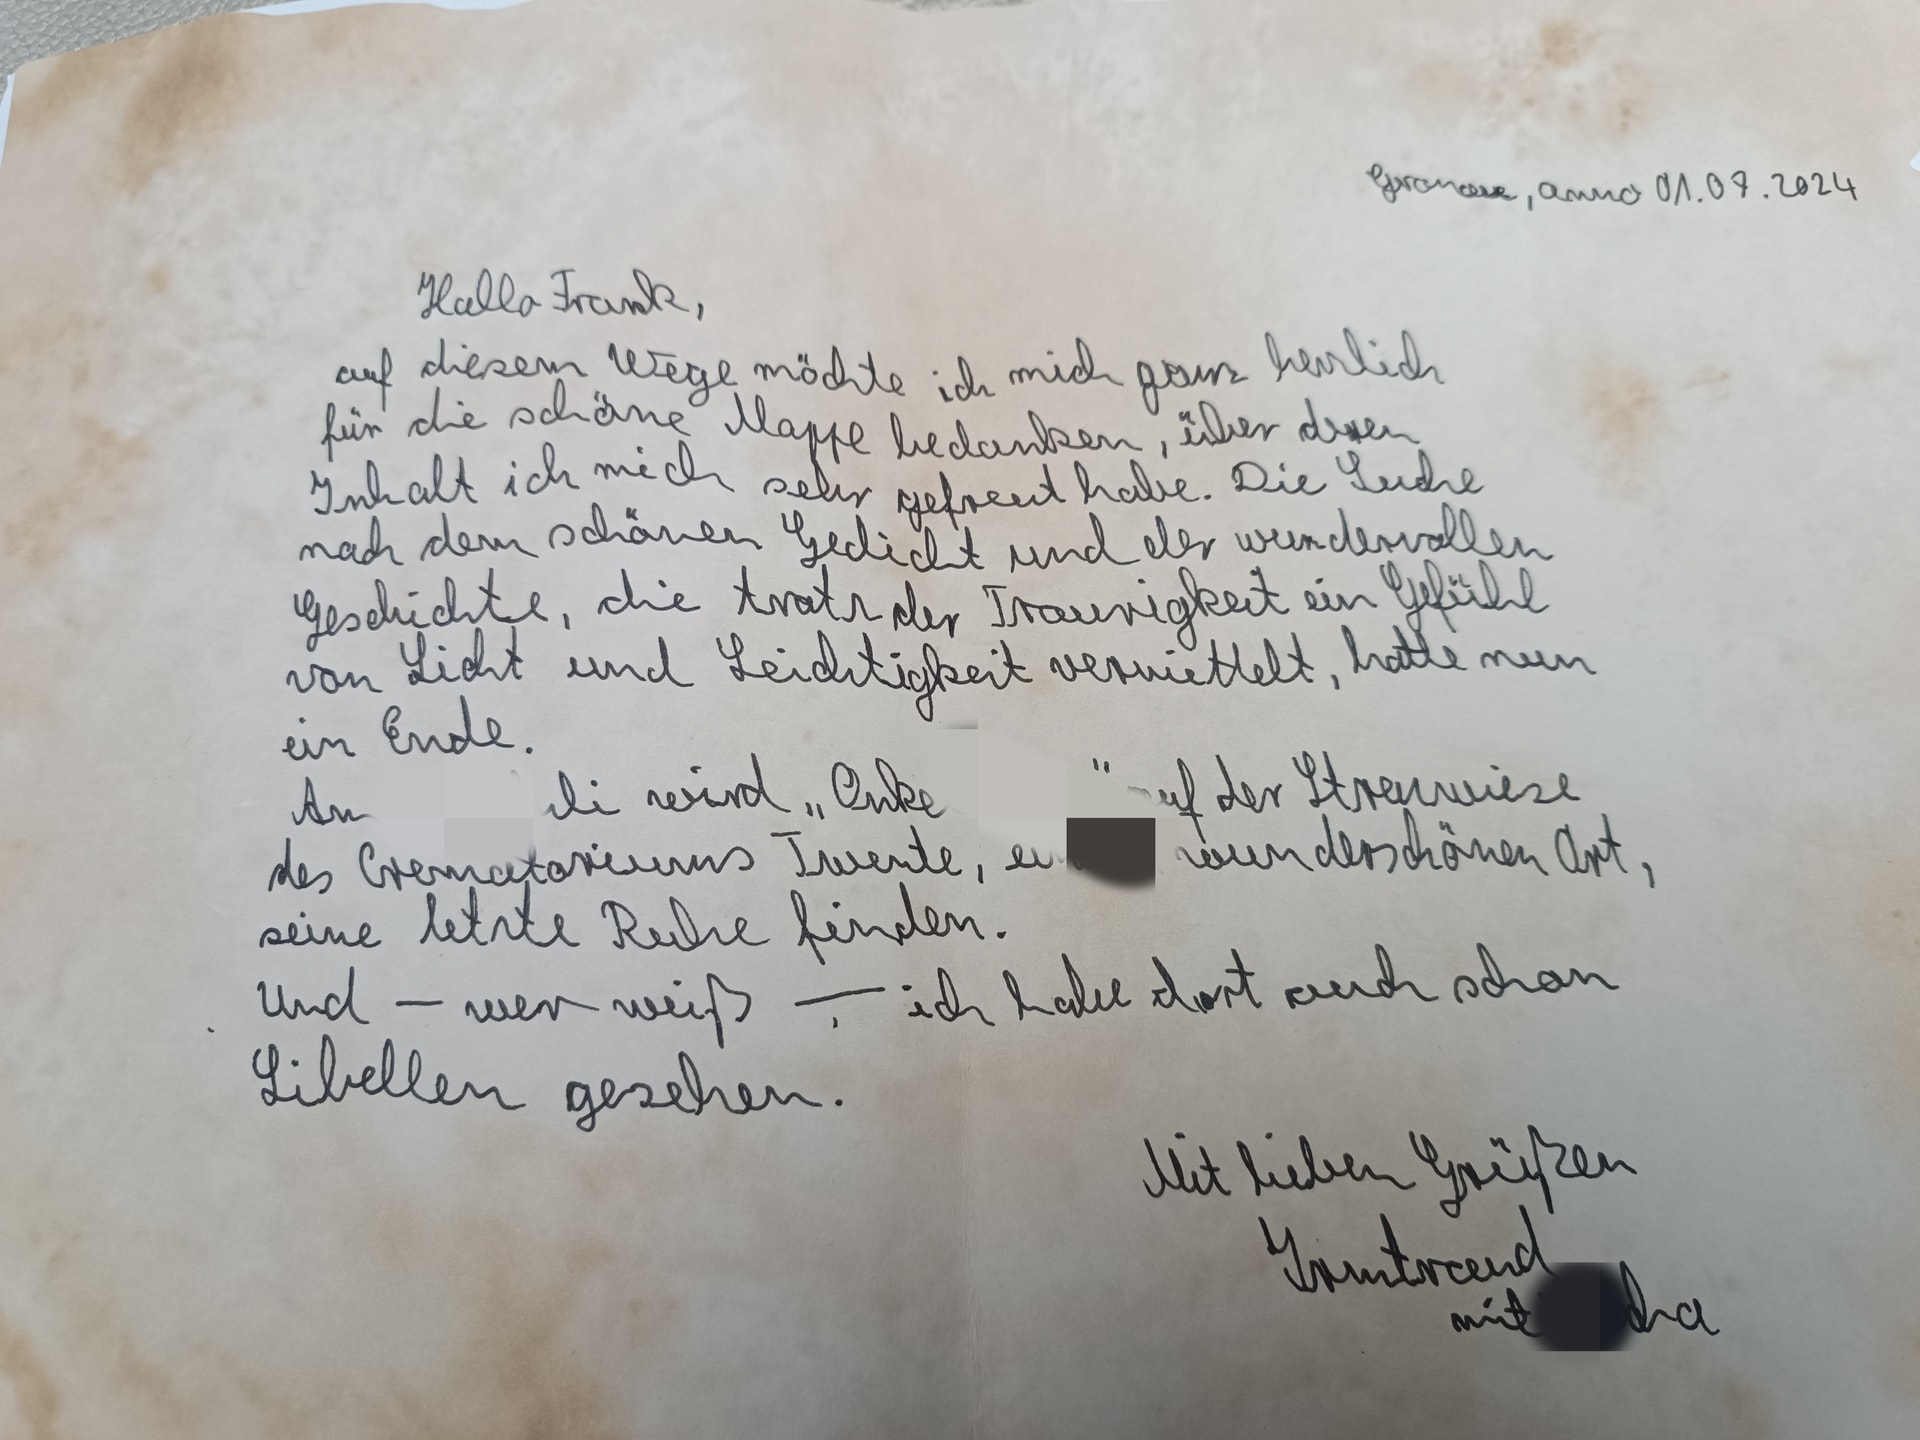 Gronau, anno 01.07.2024
Hallo Frank,
auf diesem Wege möchte ich mich ganz herzlich
für die schöne Mappe bedanken, über deren
Inhalt ich mich sehr gefreut habe. Die Suche
nach dem schönen Gedicht und der wundervollen
Geschichte, die trotz der Traurigkeit ein Gefühl
von Licht und Leichtigkeit vermittelt, hatte nun
ein Ende.
Am wird „ " auf der Streuwiese
des Crematoriums Twente, wunderschönen Ort,
seine letzte Ruhe finden.
Und – wer weiß – ich habe dort auch schon
Libellen gesehen.
Mit lieben Grüßen
Irmtraud
mit